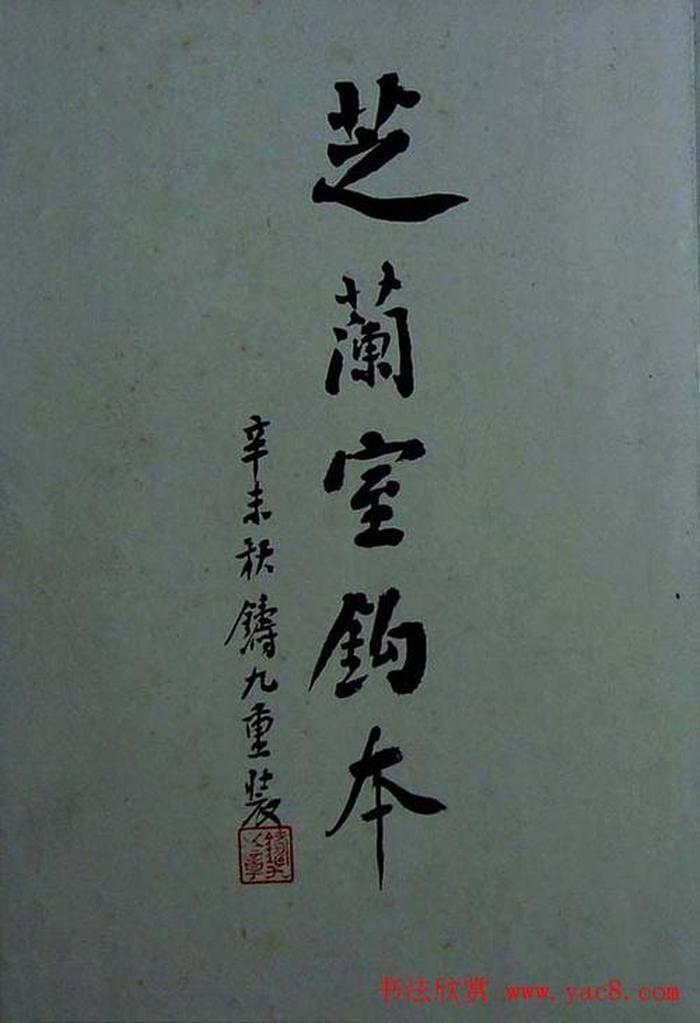 芝蘭室鈎本
辛未秋鑄九重裝
書法欣赏 www.yac8.com